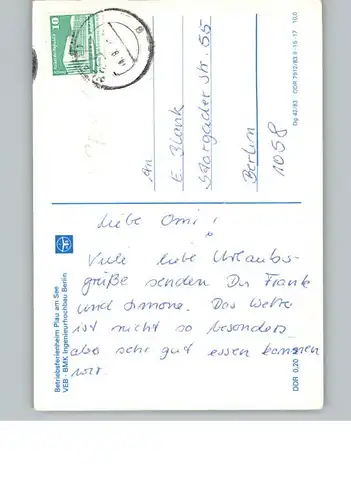 10
An
E. Blank
Storgader Str. 55
Berlin
1058
Liebe Omi!
Viele liebe Urlaubs-
grüße senden Dir Frank
und Simone. Das Wetter
ist nicht so besonders
aber sehr gut essen können
wir.
Betriebsferienheim Plau am See
VEB - BMK Ingenieurhochbau Berlin
Dg 42/83 DDR 7912/83 II-15-17 10,0
DDR 0,20